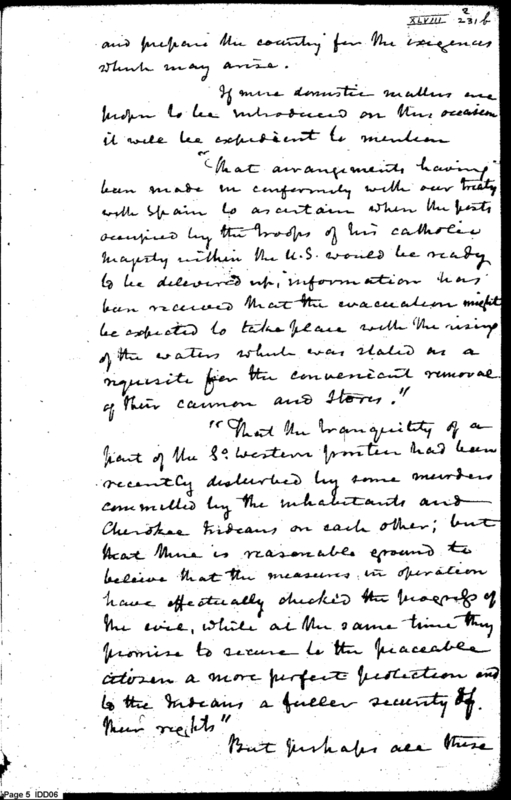 XLVIII 2
231b
and prepare the country for the exigences
which may arise.
If mere domestic matters are
proper to be introduced on this occasion
it will be expedient to mention
"That arrangements having
been made in conformity with our treaty
with Spain to ascertain when the posts
occupied by the troops of his catholic
majesty within the U.S. would be ready
to be delivered up, information has
been received that the evacuation might
be expected to take place with the rising
of the waters which was stated as a
requisite for the convenient removal
of their cannon and stores."
"That the tranquility of a
part of the So. western frontier had been
recently disturbed by some murders
committed by the inhabitants and
Cherokee Indians on each other; but
that there is reasonable ground to
believe that the measures in operation
have effectually checked the progress of
the evil, while at the same time they
promise to secure to the peaceable
citizen a more perfect protection and
to the Indians a fuller security of
their rights"
But perhaps all these
Page 5 IDD06